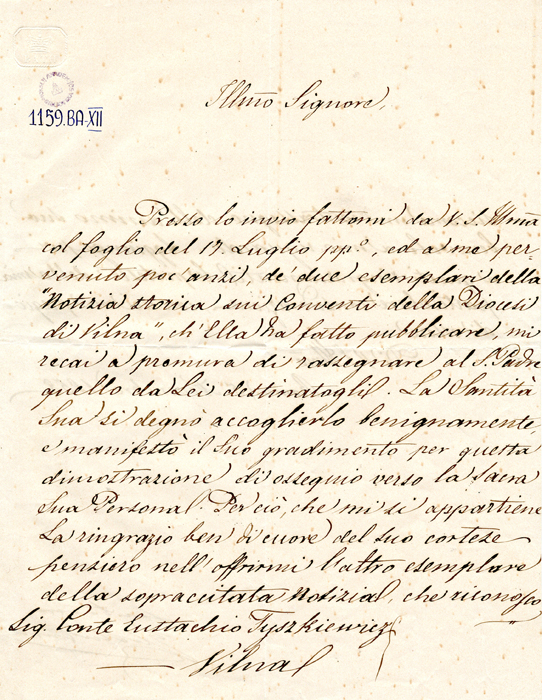 1159.BA-XII
Illmo Signore,
Presso lo invio fattomi da V. S. Illma
col foglio del 17. Luglio pp°, ed a me per-
venuto poc'anzi, de' due esemplari della
"Notizia storica sui Conventi della Diocesi
di Vilna", ch'Ella ha fatto pubblicare, mi
recai a premura di rassegnare al S. Padre
quello da Lei destinatogli. La Santità
Sua si degnò accoglierlo benignamente,
e manifestò il Suo gradimento per questa
dimostrazione di ossequio verso la Sacra
Sua Persona. Perciò, che mi si appartiene
La ringrazio ben di cuore del suo cortese
pensiero nell'offrirmi l'altro esemplare
della sopracitata Notizia, che riconosco
Sig. Conte Eustachio Tyszkiewicz
Vilna